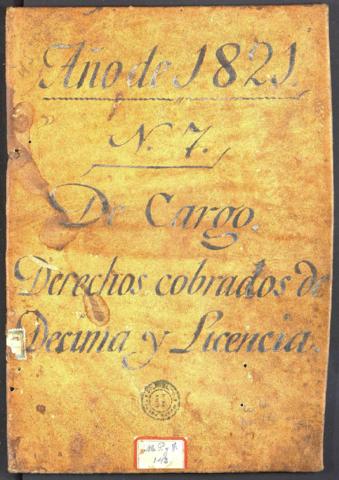 Año de 1821.
N. 7.
De Cargo.
Derechos cobrados de
Decima y Licencia.